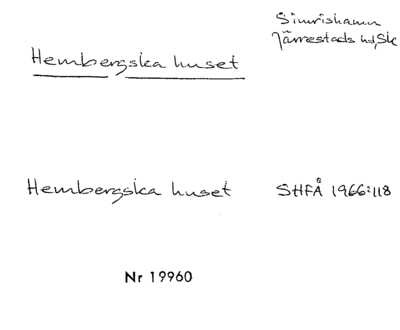 Simrishamn
Järrestads hd, Sk
Hembergska huset
Hembergska huset SHFÅ 1966:118
Nr 19960